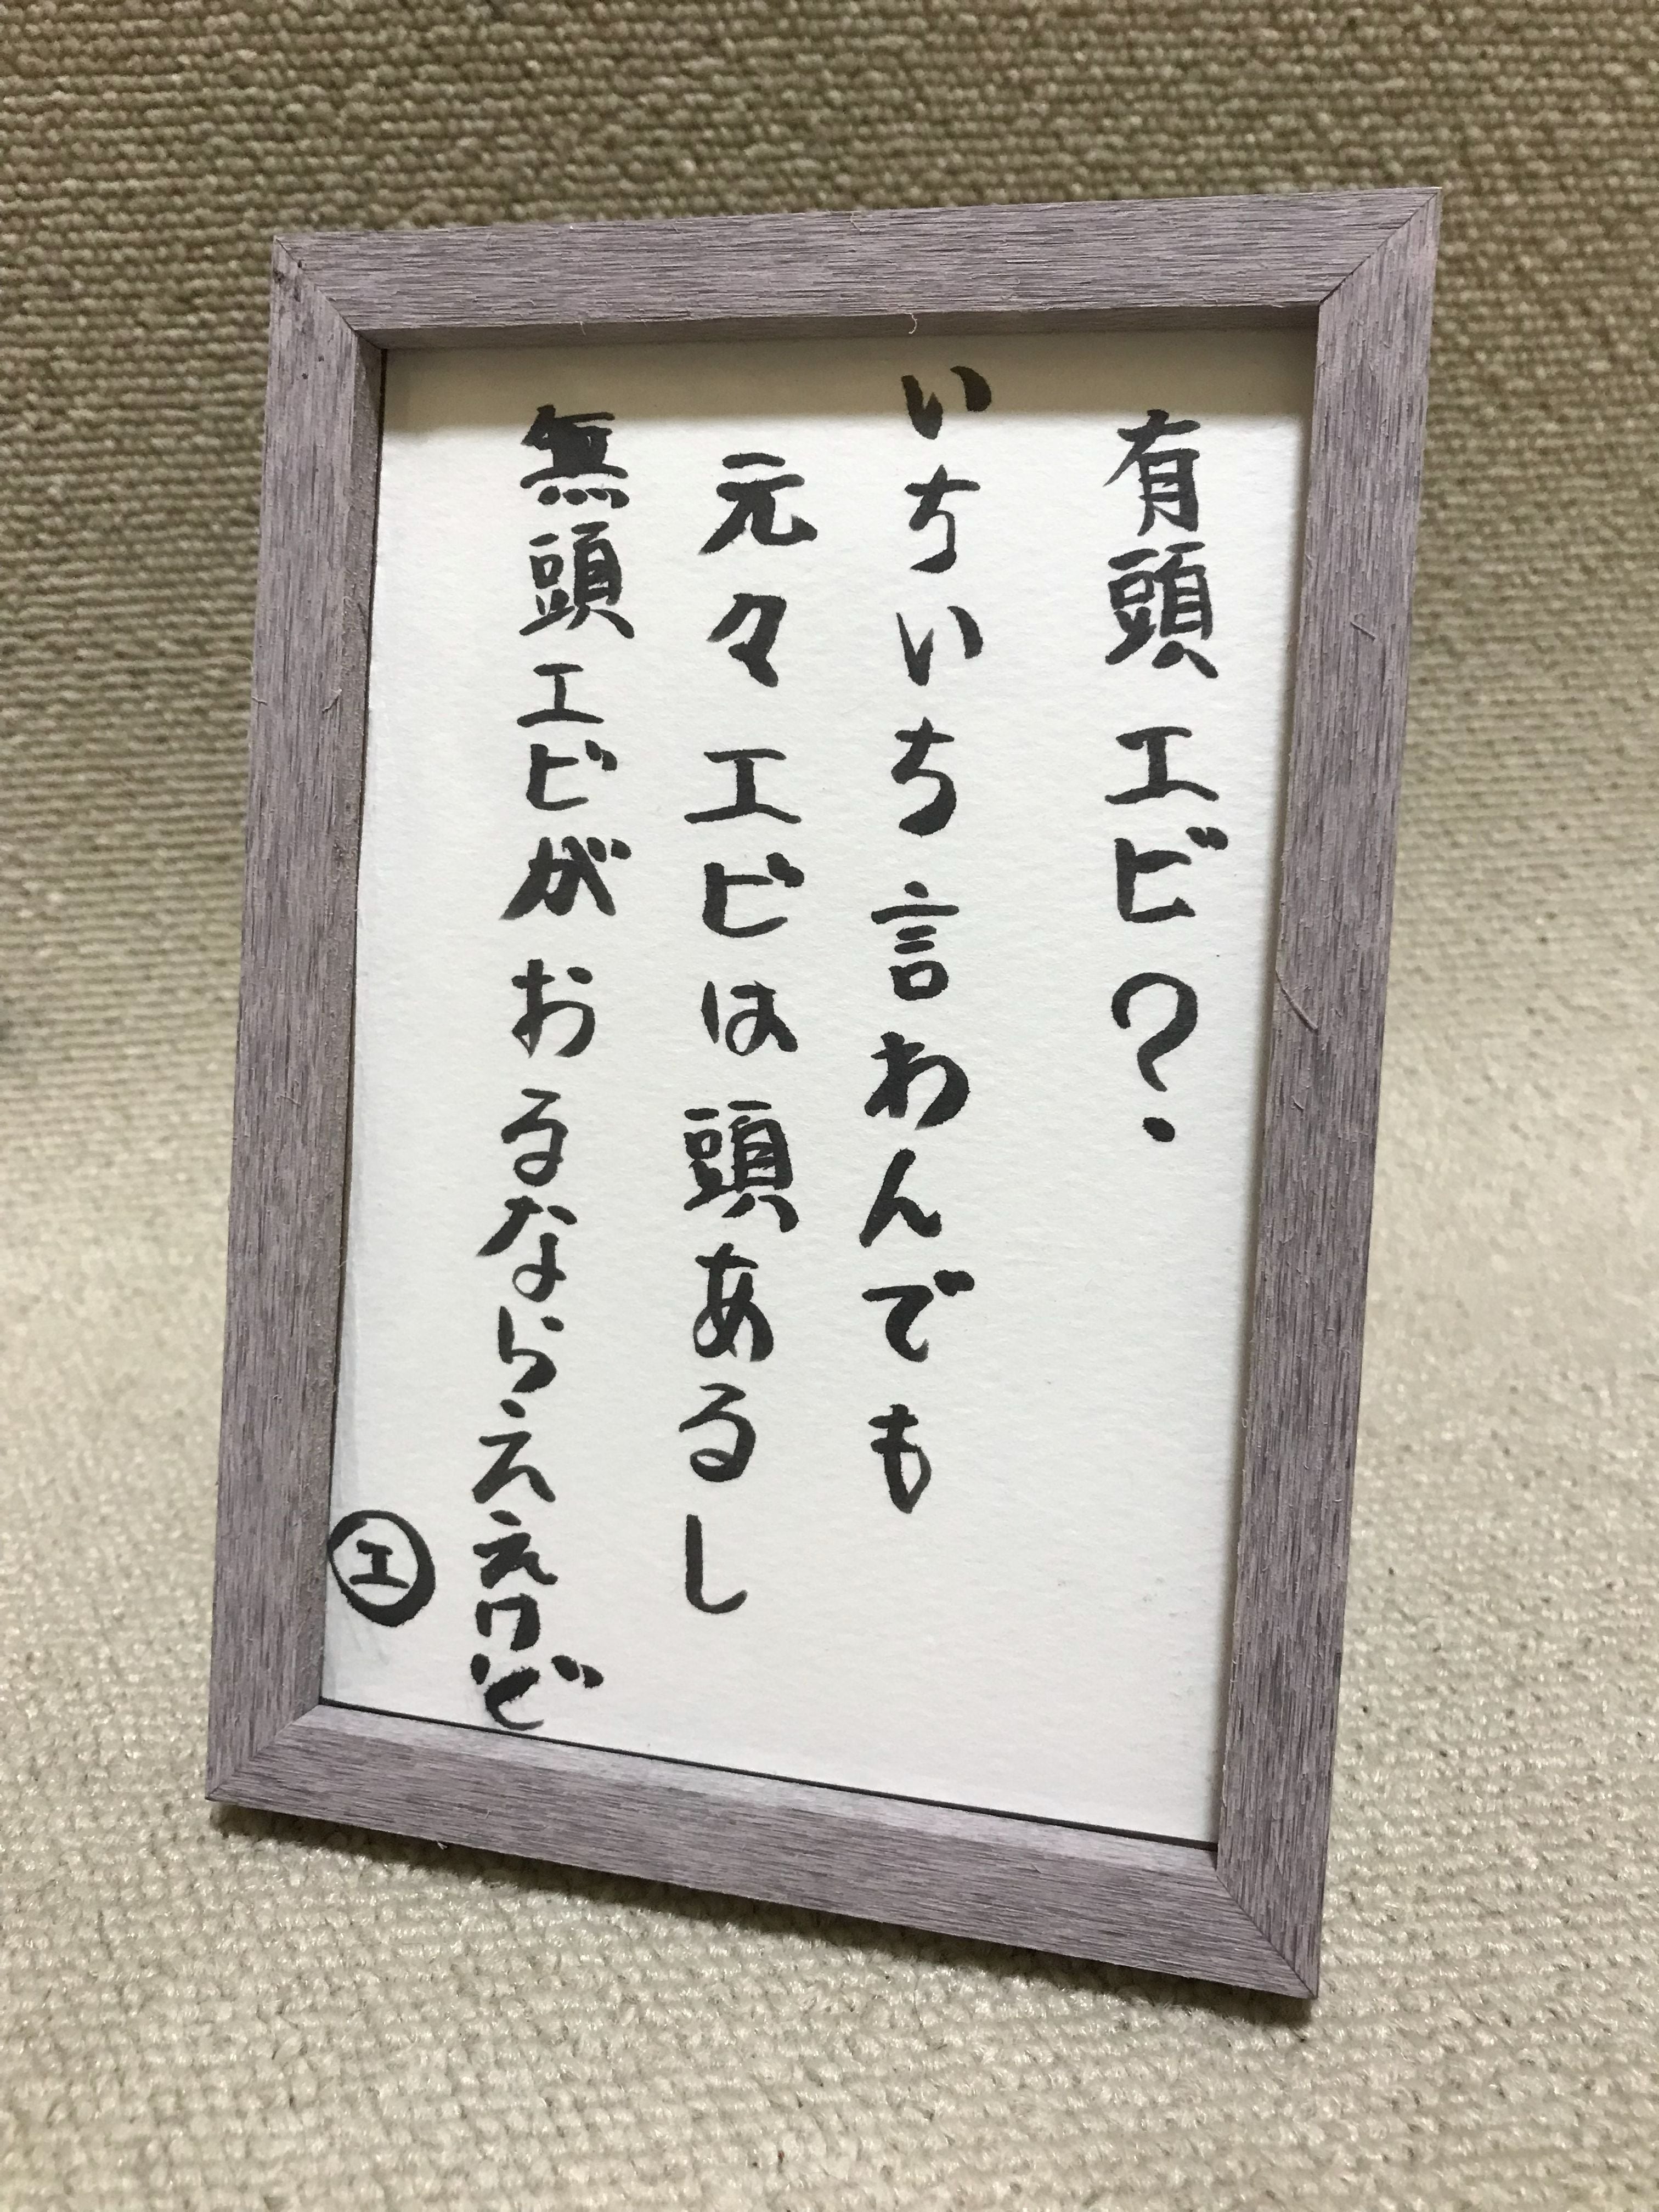 有頭エビ?
いちいち言わんでも
元々エビは頭あるし
無頭エビがおるならええけど
エ